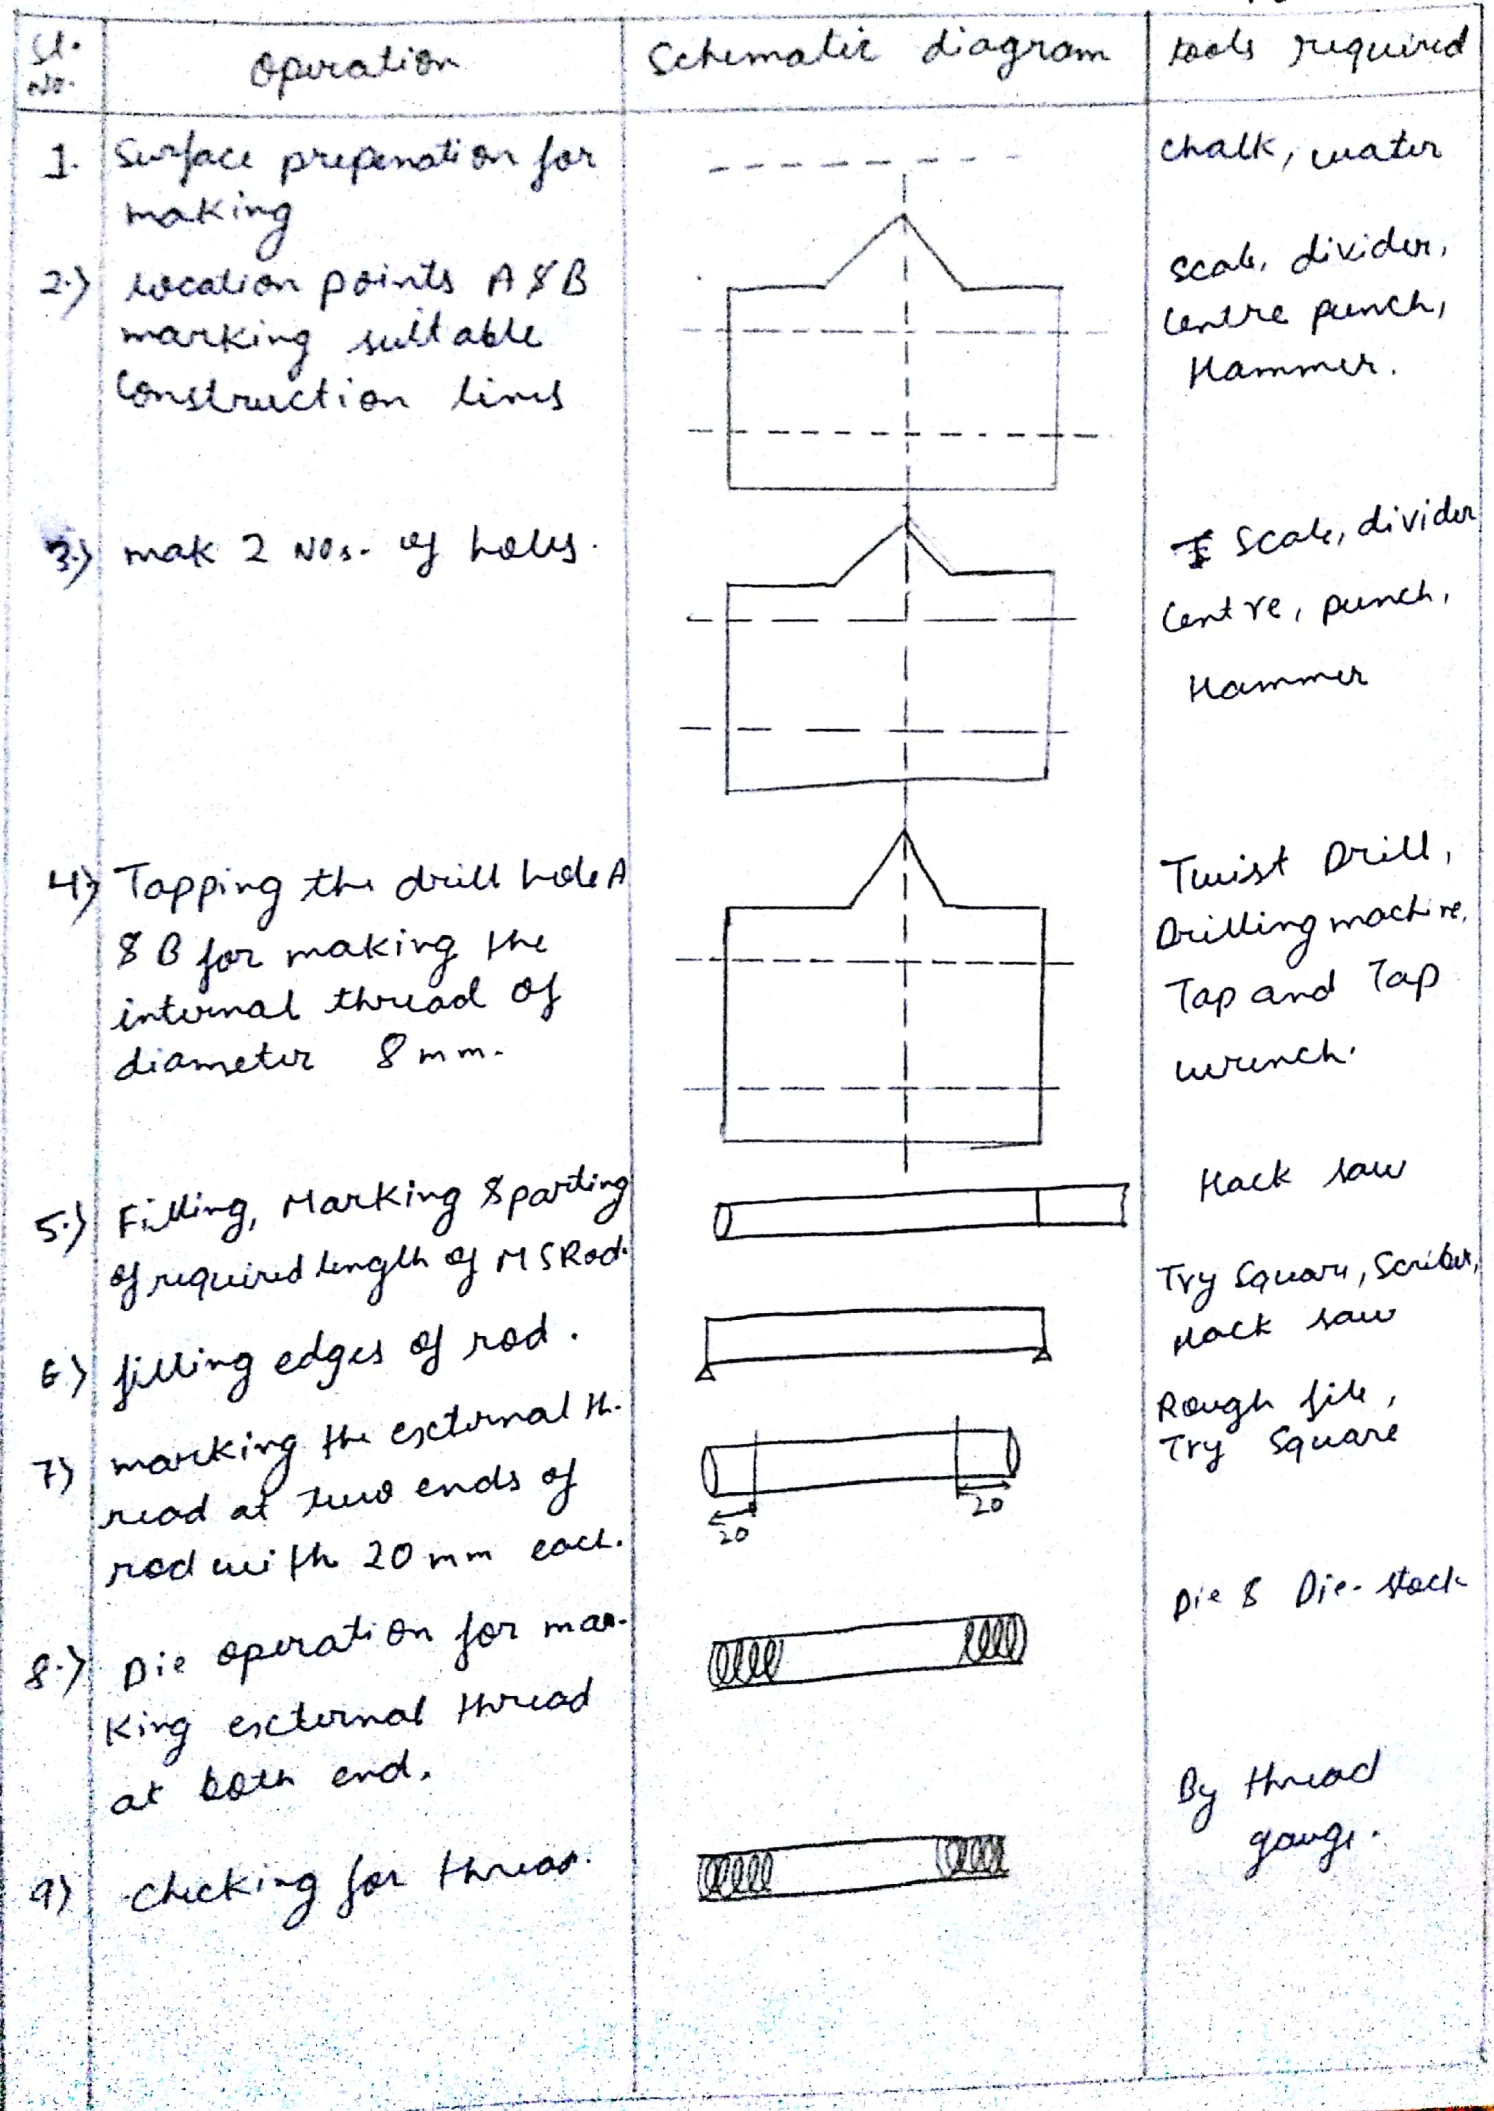 Sl. No.
Operation
Schematic diagram
tools required
1. Surface prepenation for
making
chalk, water
2.) Location points A & B
marking suitable
Construction lines
Scale, divider,
Centre punch,
Hammer.
3.) mak 2 Nos. of holes.
Scale, divider
Centre, punch,
Hammer
4) Tapping the drill hole A
& B for making the
internal thread of
diameter 8 mm.
Twist Drill,
Drilling machine,
Tap and Tap
wrench.
5.) Filling, Marking & parting
of required length of MS Rod.
Hack saw
Try Square, Scriber,
Hack saw
6) filling edges of rod.
Rough file,
Try Square
7) marking the external th-
read at two ends of
rod with 20 mm each.
20
20
8.) Die operation for mar-
king external thread
at both end.
Die & Die-stock
9) checking for thread.
By thread
gauge.